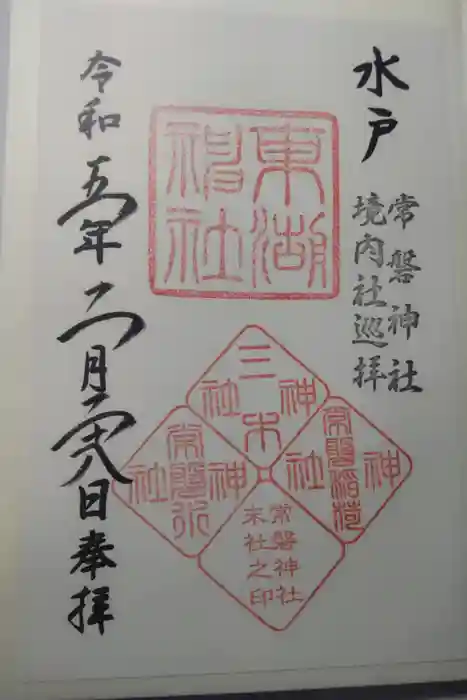 水戸
常磐神社
境内社巡拝
東湖
神社
三木
神社
常磐稲荷
神社
常磐水
神社
常磐神社
末社之印
令和五年二月二十八日奉拝